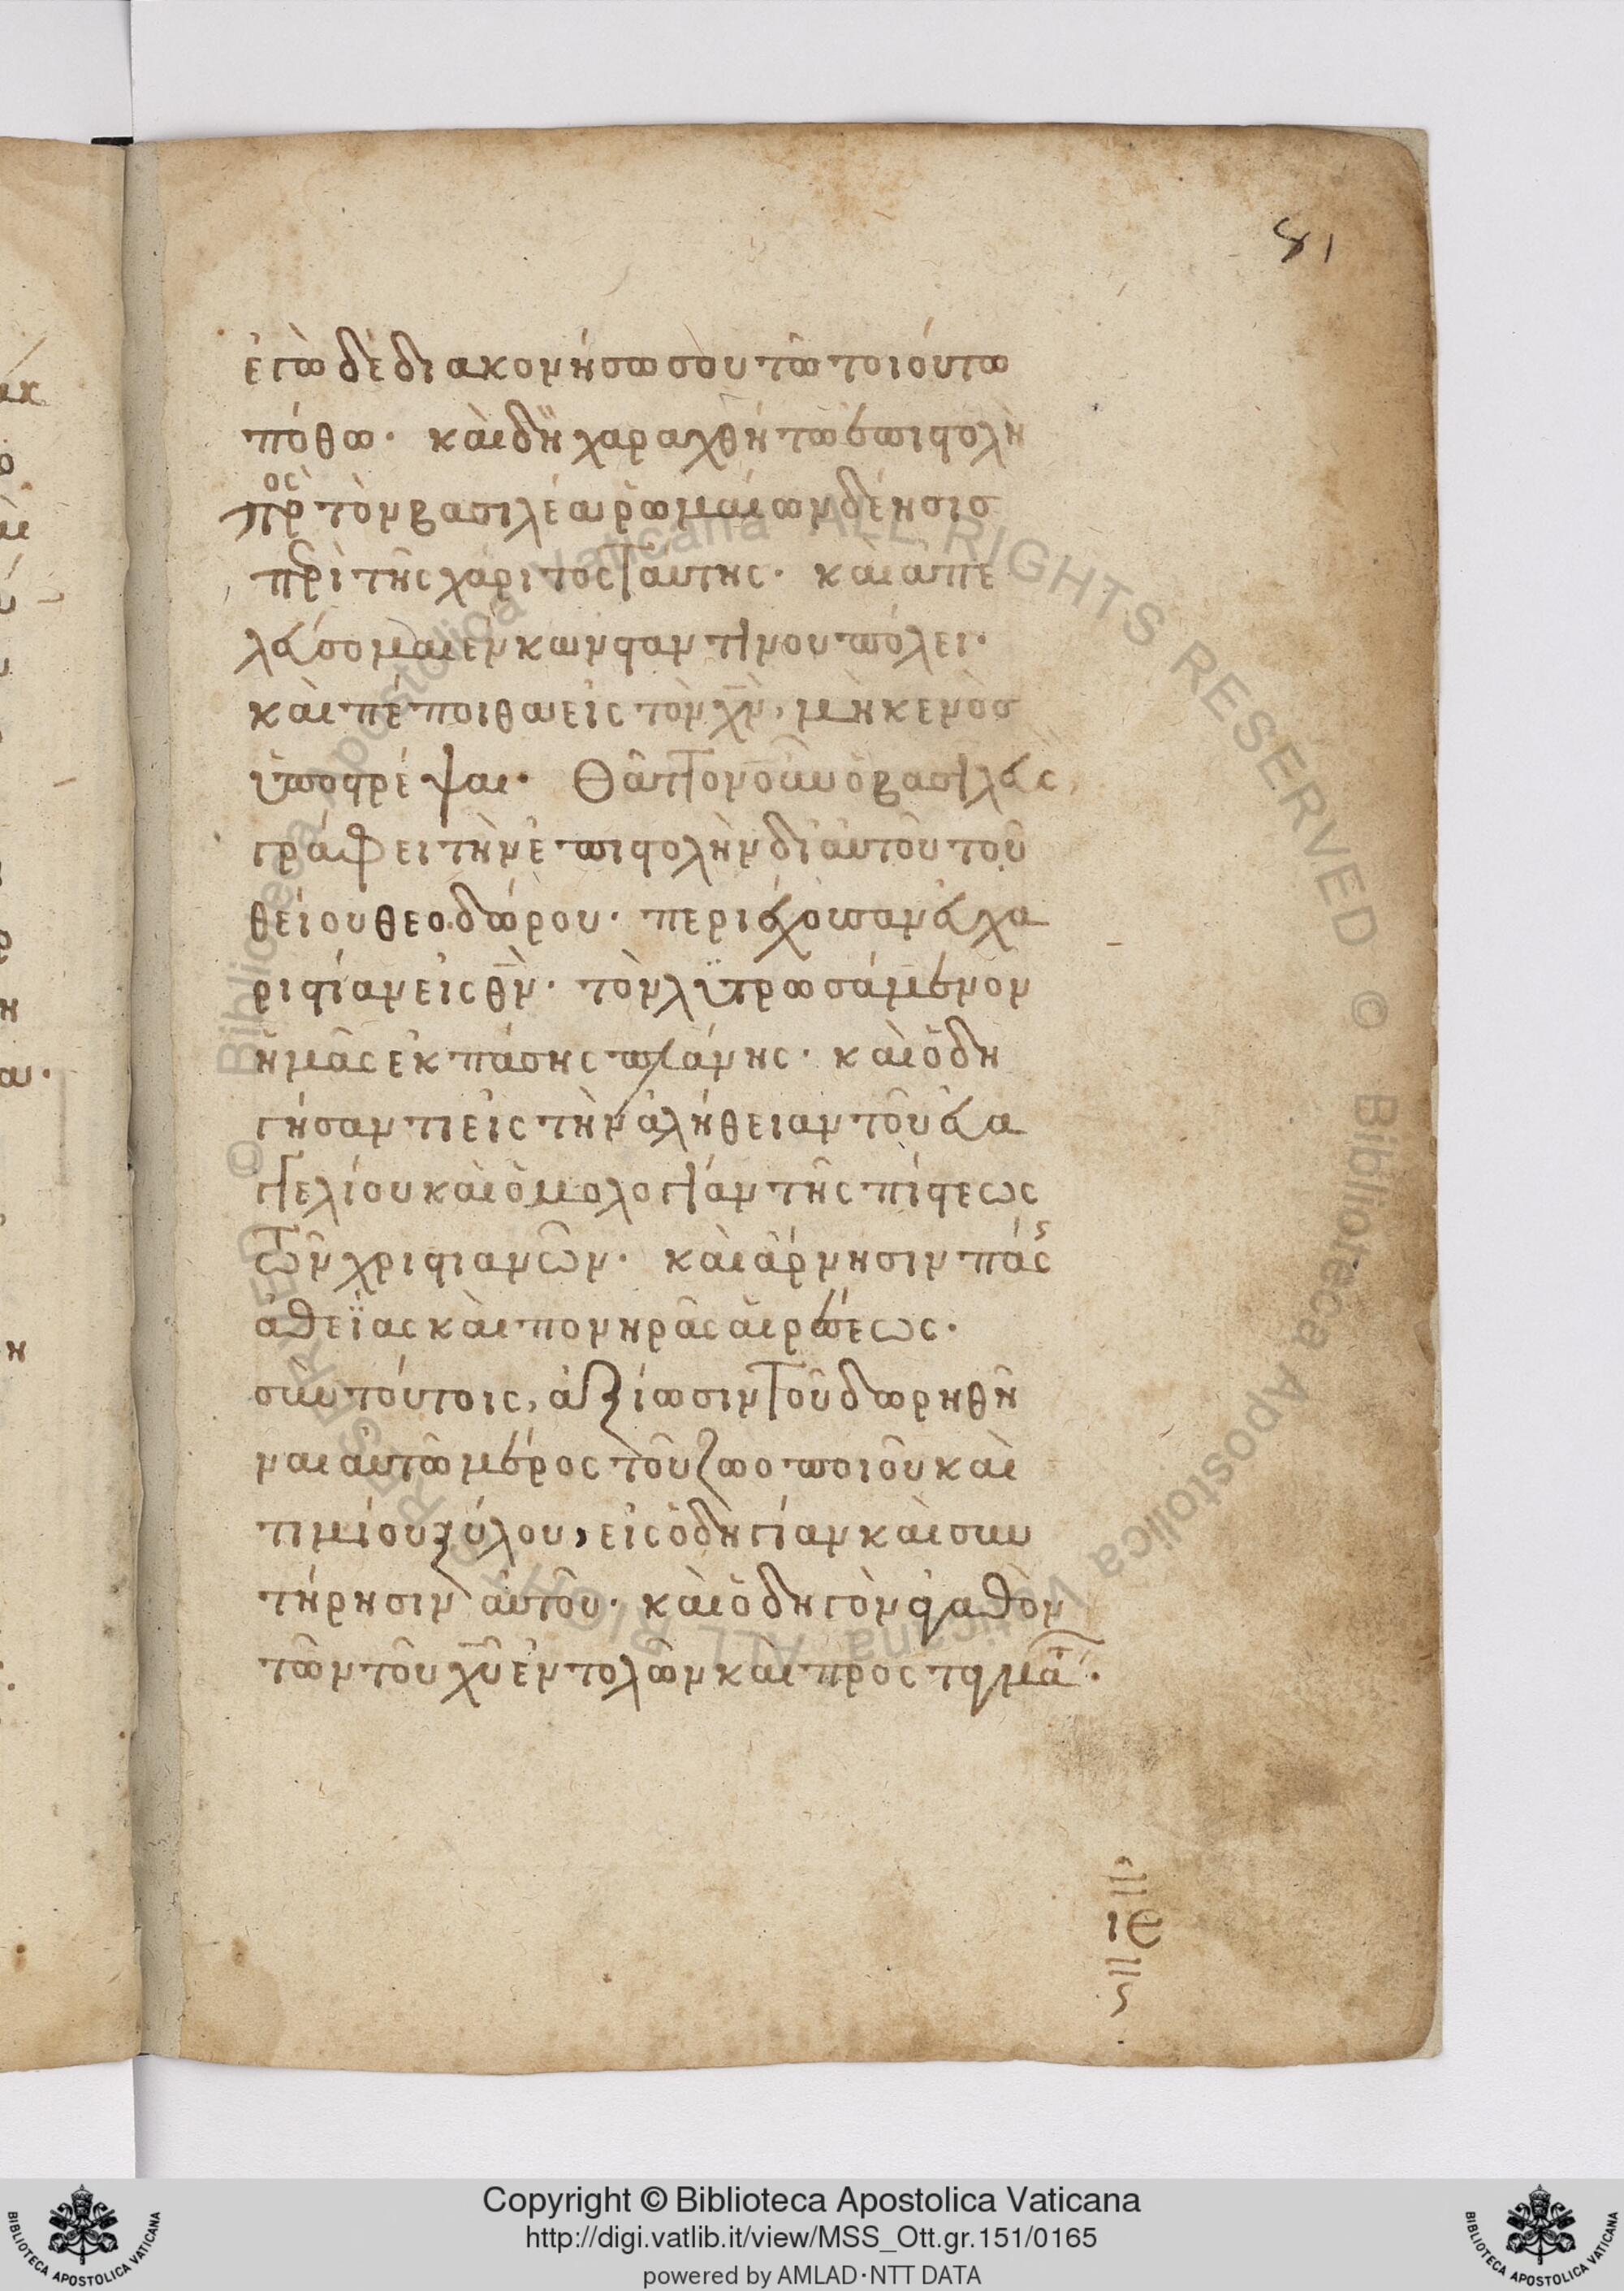 81
ἐγὼ δὲ διακονήσω σου τῶ τοιούτω
πόθω· καὶ δὴ χαραχθήτω ἐπιστολὴ
πρὸς τὸν βασιλέα ῥωμαίων δέησις
περὶ τῆς χάριτος ταύτης· καὶ ἀπε
λεύσομαι ἐν κωνσταντίνου πόλει·
καὶ πέποιθα εἰς τὸν χν, μὴ κενὸσ
ὑποστρέψαι· Θᾶττον οὖν ὁ βασιλεὺς
γράφει τὴν ἐπιστολὴν δι αὐτοῦ τοῦ
θείου θεοδώρου· περιέχουσαν εὐχα
ριστίαν εἰς θν· τὸν λυτρωσάμενον
ἡμᾶς ἐκ πάσης πλάνης· καὶ ὁδη
γήσαντι εἰς τὴν ἀλήθειαν τοῦ εὐα
γγελίου καὶ ὁμολογίαν τῆς πίστεως
τῶν χριστιανῶν· καὶ ἄρνησιν πάσ
ἀθεΐας καὶ πονηρᾶς αἱρέσεως·
σὺν τούτοις, ἀξίωσιν τοῦ δωρηθῆ
ναι αὐτῶ μέρος τοῦ ζωοποιοῦ καὶ
τιμίου ξύλου, εἰς ὁδηγίαν καὶ συν
τήρησιν αὐτοῦ· καὶ ὁδηγὸν ἀγαθὸν
τῶν τοῦ χυ ἐντολῶν καὶ προσταγμάτ·
ιε
© Biblioteca Apostolica Vaticana ALL RIGHTS RESERVED © Biblioteca Apostolica Vaticana ALL RIGHTS RESERVED
Copyright © Biblioteca Apostolica Vaticana
http://digi.vatlib.it/view/MSS_Ott.gr.151/0165
powered by AMLAD·NTT DATA
BIBLIOTECA APOSTOLICA VATICANA
BIBLIOTECA APOSTOLICA VATICANA